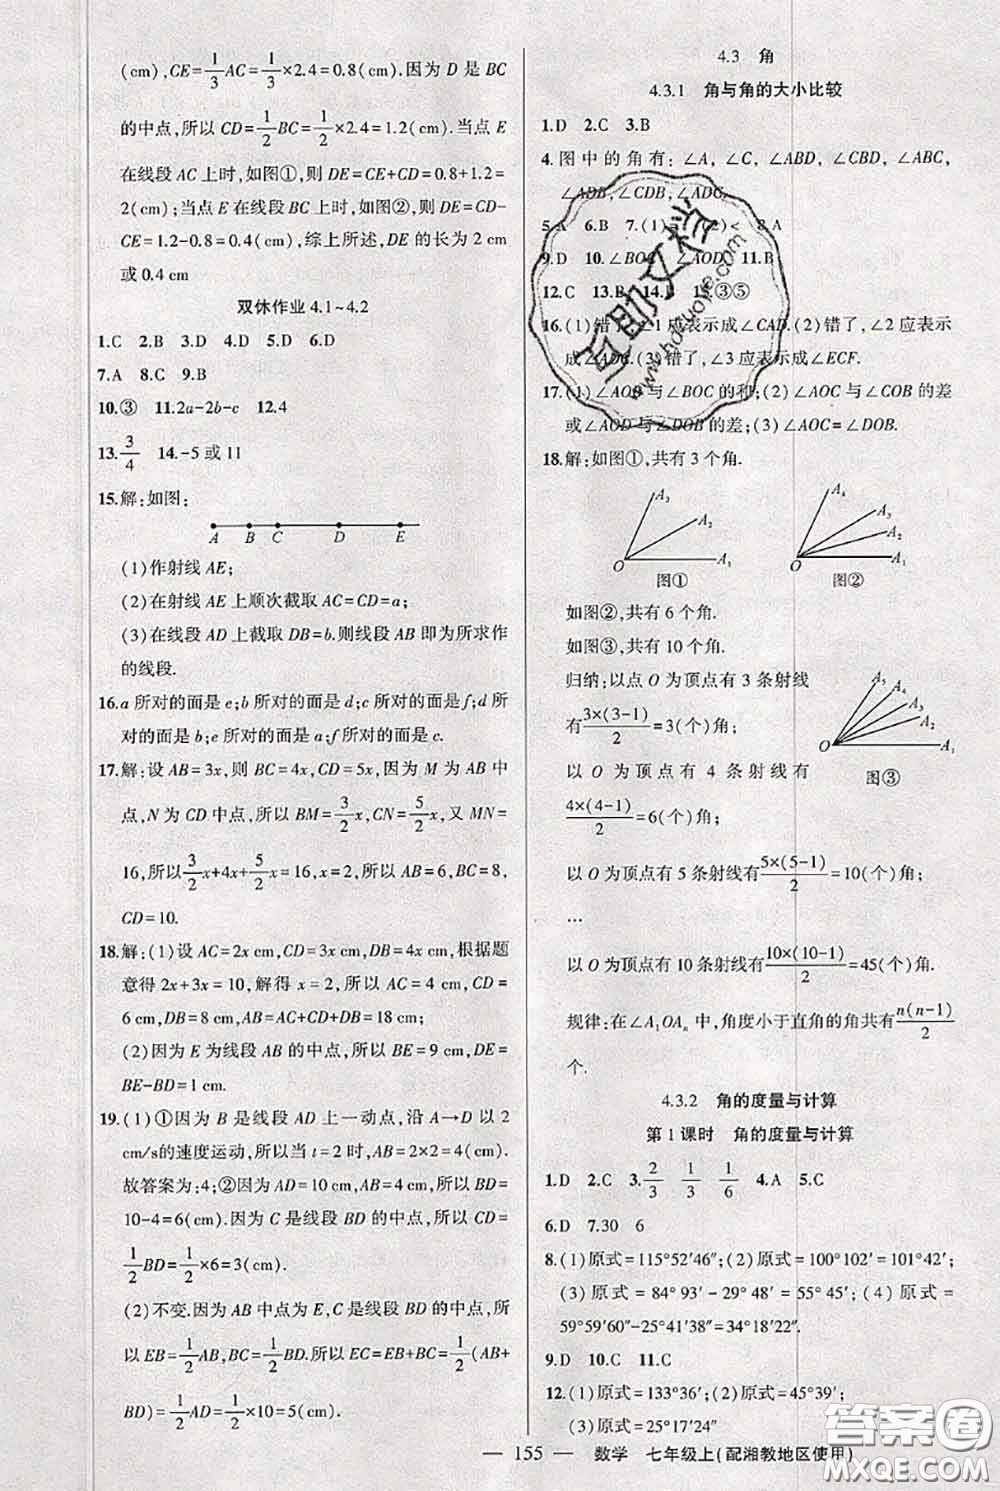 (cm),CE=1/3AC=1/3×2.4=0.8(cm).因为 D 是 BC
的中点,所以 CD=1/2BC=1/2×2.4=1.2(cm).当点 E
在线段 AC 上时,如图①,则 DE=CE+CD=0.8+1.2=
2(cm);当点 E 在线段 BC 上时,如图②,则 DE=CD-
CE=1.2-0.8=0.4(cm),综上所述,DE 的长为 2 cm
或 0.4 cm
双休作业 4.1~4.2
1.C 2.B 3.D 4.D 5.D 6.D
7.A 8.C 9.B
10.③ 11.2a-2b-c 12.4
13.3/4 14.-5 或 11
15.解:如图:
A B C D E
(1)作射线 AE;
(2)在射线 AE 上顺次截取 AC=CD=a;
(3)在线段 AD 上截取 DB=b.则线段 AB 即为所求作
的线段.
16.a 所对的面是 e;b 所对的面是 d;c 所对的面是 f;d 所
对的面是 b;e 所对的面是 a;f 所对的面是 c.
17.解:设 AB=3x,则 BC=4x,CD=5x,因为 M 为 AB 中
点,N 为 CD 中点,所以 BM=3/2x,CN=5/2x,又 MN=
16,所以3/2x+4x+5/2x=16,x=2,所以 AB=6,BC=8,
CD=10.
18.解:(1)设 AC=2x cm,CD=3x cm,DB=4x cm,根据题
意得 2x+3x=10,解得 x=2,所以 AC=4 cm,CD=
6 cm,DB=8 cm,AB=AC+CD+DB=18 cm;
(2)因为 E 为线段 AB 的中点,所以 BE=9 cm,DE=
BE-BD=1 cm.
19.(1)①因为 B 是线段 AD 上一动点,沿 A→D 以 2
cm/s的速度运动,所以当 t=2 时,AB=2×2=4(cm).
故答案为:4;②因为 AD=10 cm,AB=4 cm,所以 BD=
10-4=6(cm).因为 C 是线段 BD 的中点,所以 CD=
1/2BD=1/2×6=3(cm);
(2)不变.因为 AB 中点为 E,C 是线段 BD 的中点,所
以 EB=1/2AB,BC=1/2BD.所以 EC=EB+BC=1/2(AB+
BD)=1/2AD=1/2×10=5(cm).
4.3 角
4.3.1 角与角的大小比较
1.D 2.C 3.B
4.图中的角有:∠A,∠C,∠ABD,∠CBD,∠ABC,
∠ADB,∠CDB,∠ADC.
5.A 6.B 7.(1)= (2)< 8.A
9.D 10.∠BOC ∠AOD 11.B
12.C 13.B 14. 15.③⑤
16.(1)错了,∠1应表示成∠CAD.(2)错了,∠2应表示
成∠ADC.(3)错了,∠3应表示成∠ECF.
17.(1)∠AOB与∠BOC的和;(2)∠AOC与∠COB的差
或∠AOD与∠DOB的差;(3)∠AOC=∠DOB.
18.解:如图①,共有 3 个角.
A3 A2 O A1 图①
A4 A3 A2 O A1 图②
如图②,共有 6 个角.
如图③,共有 10 个角.
归纳:以点 O 为顶点有 3 条射线
有3×(3-1)/2=3(个)角;
A5 A4 A3 A2 O A1 图③
以 O 为顶点有 4 条射线有
4×(4-1)/2=6(个)角;
以 O 为顶点有 5 条射线有5×(5-1)/2=10(个)角;
…
以 O 为顶点有 10 条射线有10×(10-1)/2=45(个)角.
规律:在∠A1OAn 中,角度小于直角的角共有n(n-1)/2
个.
4.3.2 角的度量与计算
第 1 课时 角的度量与计算
1.D 2.C 3.2/3 1/3 1/6 4.A 5.C
6.D 7.30 6
8.(1)原式=115°52′46″;(2)原式=100°102′=101°42′;
(3)原式=84°93′-29°48′=55°45′;(4)原式=
59°59′60″-25°41′38″=34°18′22″.
9.D 10.C 11.C
12.(1)原式=133°36′;(2)原式=45°39′;
(3)原式=25°17′24″
— 155 — 数学 七年级上(配湘教地区使用)
互助文档
www.hdzuoye.com
答案圈
MXQE.COM